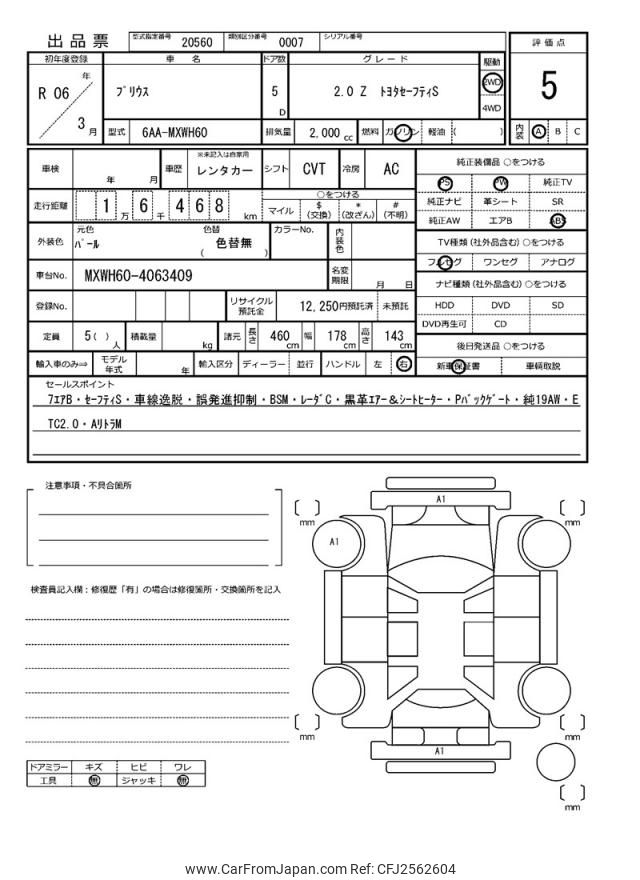 出品票 型式指定番号 20560 類別区分番号 0007 シリアル番号
評価点
5
内装 A B C
初年度登録 車名 ドア数 グレード 駆動
R 06 年 3 月
プリウス 5 D 2.0 Z トヨタセーフティS 2WD 4WD
型式 6AA-MXWH60 排気量 2,000 cc 燃料 ガソリン 軽油 ( )
車検 年 月 車歴 ※未記入は自家用 レンタカー シフト CVT 冷房 AC
純正装備品 ○をつける
PS PW 純正TV
純正ナビ 革シート SR
純正AW エアB ABS
走行距離 1 万 6 千 4 6 8 km
○をつける
マイル $ (交換) * (改ざん) # (不明)
外装色 元色 パール 色替 色替無 ( ) カラーNo. 内装色
TV種類 (社外品含む) ○をつける
フルセグ ワンセグ アナログ
車台No. MXWH60-4063409 名変期限 月 日
ナビ種類 (社外品含む) ○をつける
HDD DVD SD
DVD再生可 CD
登録No. リサイクル預託金 12,250円預託済 未預託
定員 5( ) 人 積載量 kg 諸元 長さ 460 cm 幅 178 cm 高さ 143 cm
後日発送品 ○をつける
新車保証書 車輌取説
輸入車のみ⇒ モデル年式 年 輸入区分 ディーラー 並行 ハンドル 左 右
セールスポイント
7エアB・セーフティS・車線逸脱・誤発進抑制・BSM・レーダC・黒革エアー&シートヒーター・Pバックゲート・純19AW・E
TC2.0・AリトラM
注意事項・不具合箇所
検査員記入欄：修復歴「有」の場合は修復箇所・交換箇所を記入
A1
A1
A1
mm
mm
mm
mm
mm
ドアミラー キズ ヒビ ワレ
工具 無 ジャッキ 無
www.CarFromJapan.com Ref: CFJ2562604